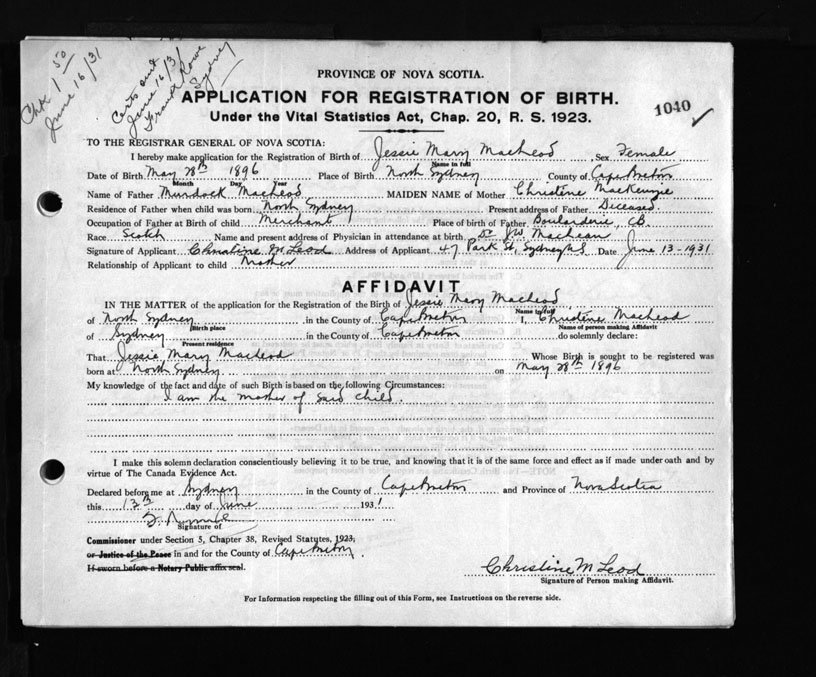 Chk 1 50
June 16/31
Certs out
June 16/31
Frank Rowe
Sydney
PROVINCE OF NOVA SCOTIA.
APPLICATION FOR REGISTRATION OF BIRTH.
1040
Under the Vital Statistics Act, Chap. 20, R. S. 1923.
TO THE REGISTRAR GENERAL OF NOVA SCOTIA:
I hereby make application for the Registration of Birth of Jessie Mary MacLeod Sex Female
Name in full
Date of Birth May 28th 1896 Place of Birth North Sydney County of Cape Breton
Month Day Year
Name of Father Murdock MacLeod MAIDEN NAME of Mother Christine MacKenzie
Residence of Father when child was born North Sydney Present address of Father Deceased
Occupation of Father at Birth of child Merchant Place of birth of Father Boularderie, CB.
Race Scotch Name and present address of Physician in attendance at birth Dr J.W. MacLean
Signature of Applicant Christine McLeod Address of Applicant 47 Park St, Sydney N.S Date June 13-1931
Relationship of Applicant to child Mother
AFFIDAVIT
IN THE MATTER of the application for the Registration of the Birth of Jessie Mary MacLeod
Name in full
of North Sydney in the County of Cape Breton I, Christine MacLeod
Birth place Name of person making Affidavit
of Sydney in the County of Cape Breton do solemnly declare:
Present residence
That Jessie Mary MacLeod Whose Birth is sought to be registered was
born at North Sydney on May 28th 1896
My knowledge of the fact and date of such Birth is based on the following Circumstances:
I am the mother of said child.
I make this solemn declaration conscientiously believing it to be true, and knowing that it is of the same force and effect as if made under oath and by
virtue of The Canada Evidence Act.
Declared before me at Sydney in the County of Cape Breton and Province of Nova Scotia
this 13th day of June 1931
Signature of
Commissioner under Section 5, Chapter 38, Revised Statutes, 1923,
or Justice of the Peace in and for the County of Cape Breton.
If sworn before a Notary Public affix seal.
Christine McLeod
Signature of Person making Affidavit.
For Information respecting the filling out of this Form, see Instructions on the reverse side.